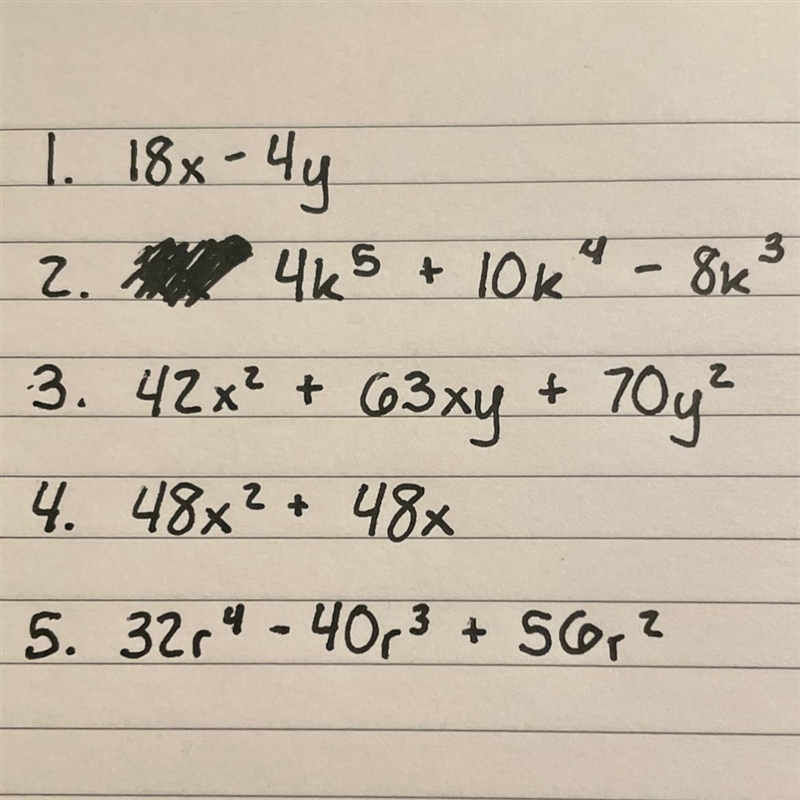 1. 18x - 4y
2. 4k⁵ + 10k⁴ - 8k³
3. 42x² + 63xy + 70y²
4. 48x² + 48x
5. 32r⁴ - 40r³ + 56r²